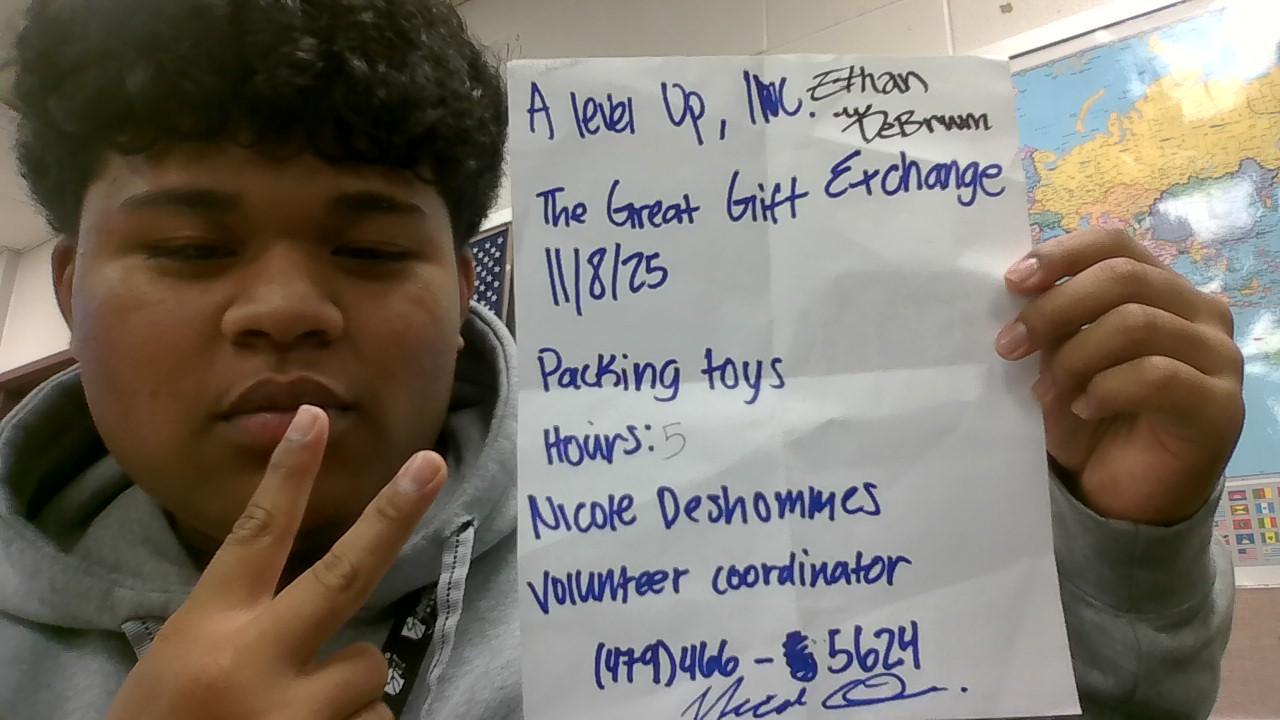 A level Up, INC. Ethan
DeBrum
The Great Gift Exchange
11/8/25
Packing toys
Hours: 5
Nicole Deshommes
Volunteer coordinator
(479)466-5624